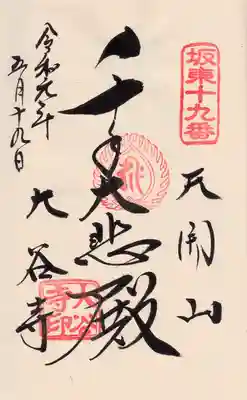 坂東十九番
天開山
千手大悲殿
大谷寺
大谷寺印
令和元年
五月十九日